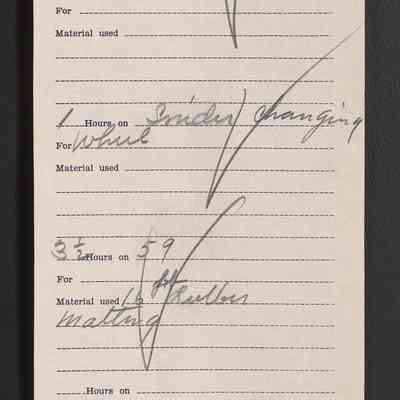 For
Material used
1 Hours on Snider changing
For Wheel
Material used
3½ Hours on 59
For
Material used 16 ft Rubber
Matting
Hours on